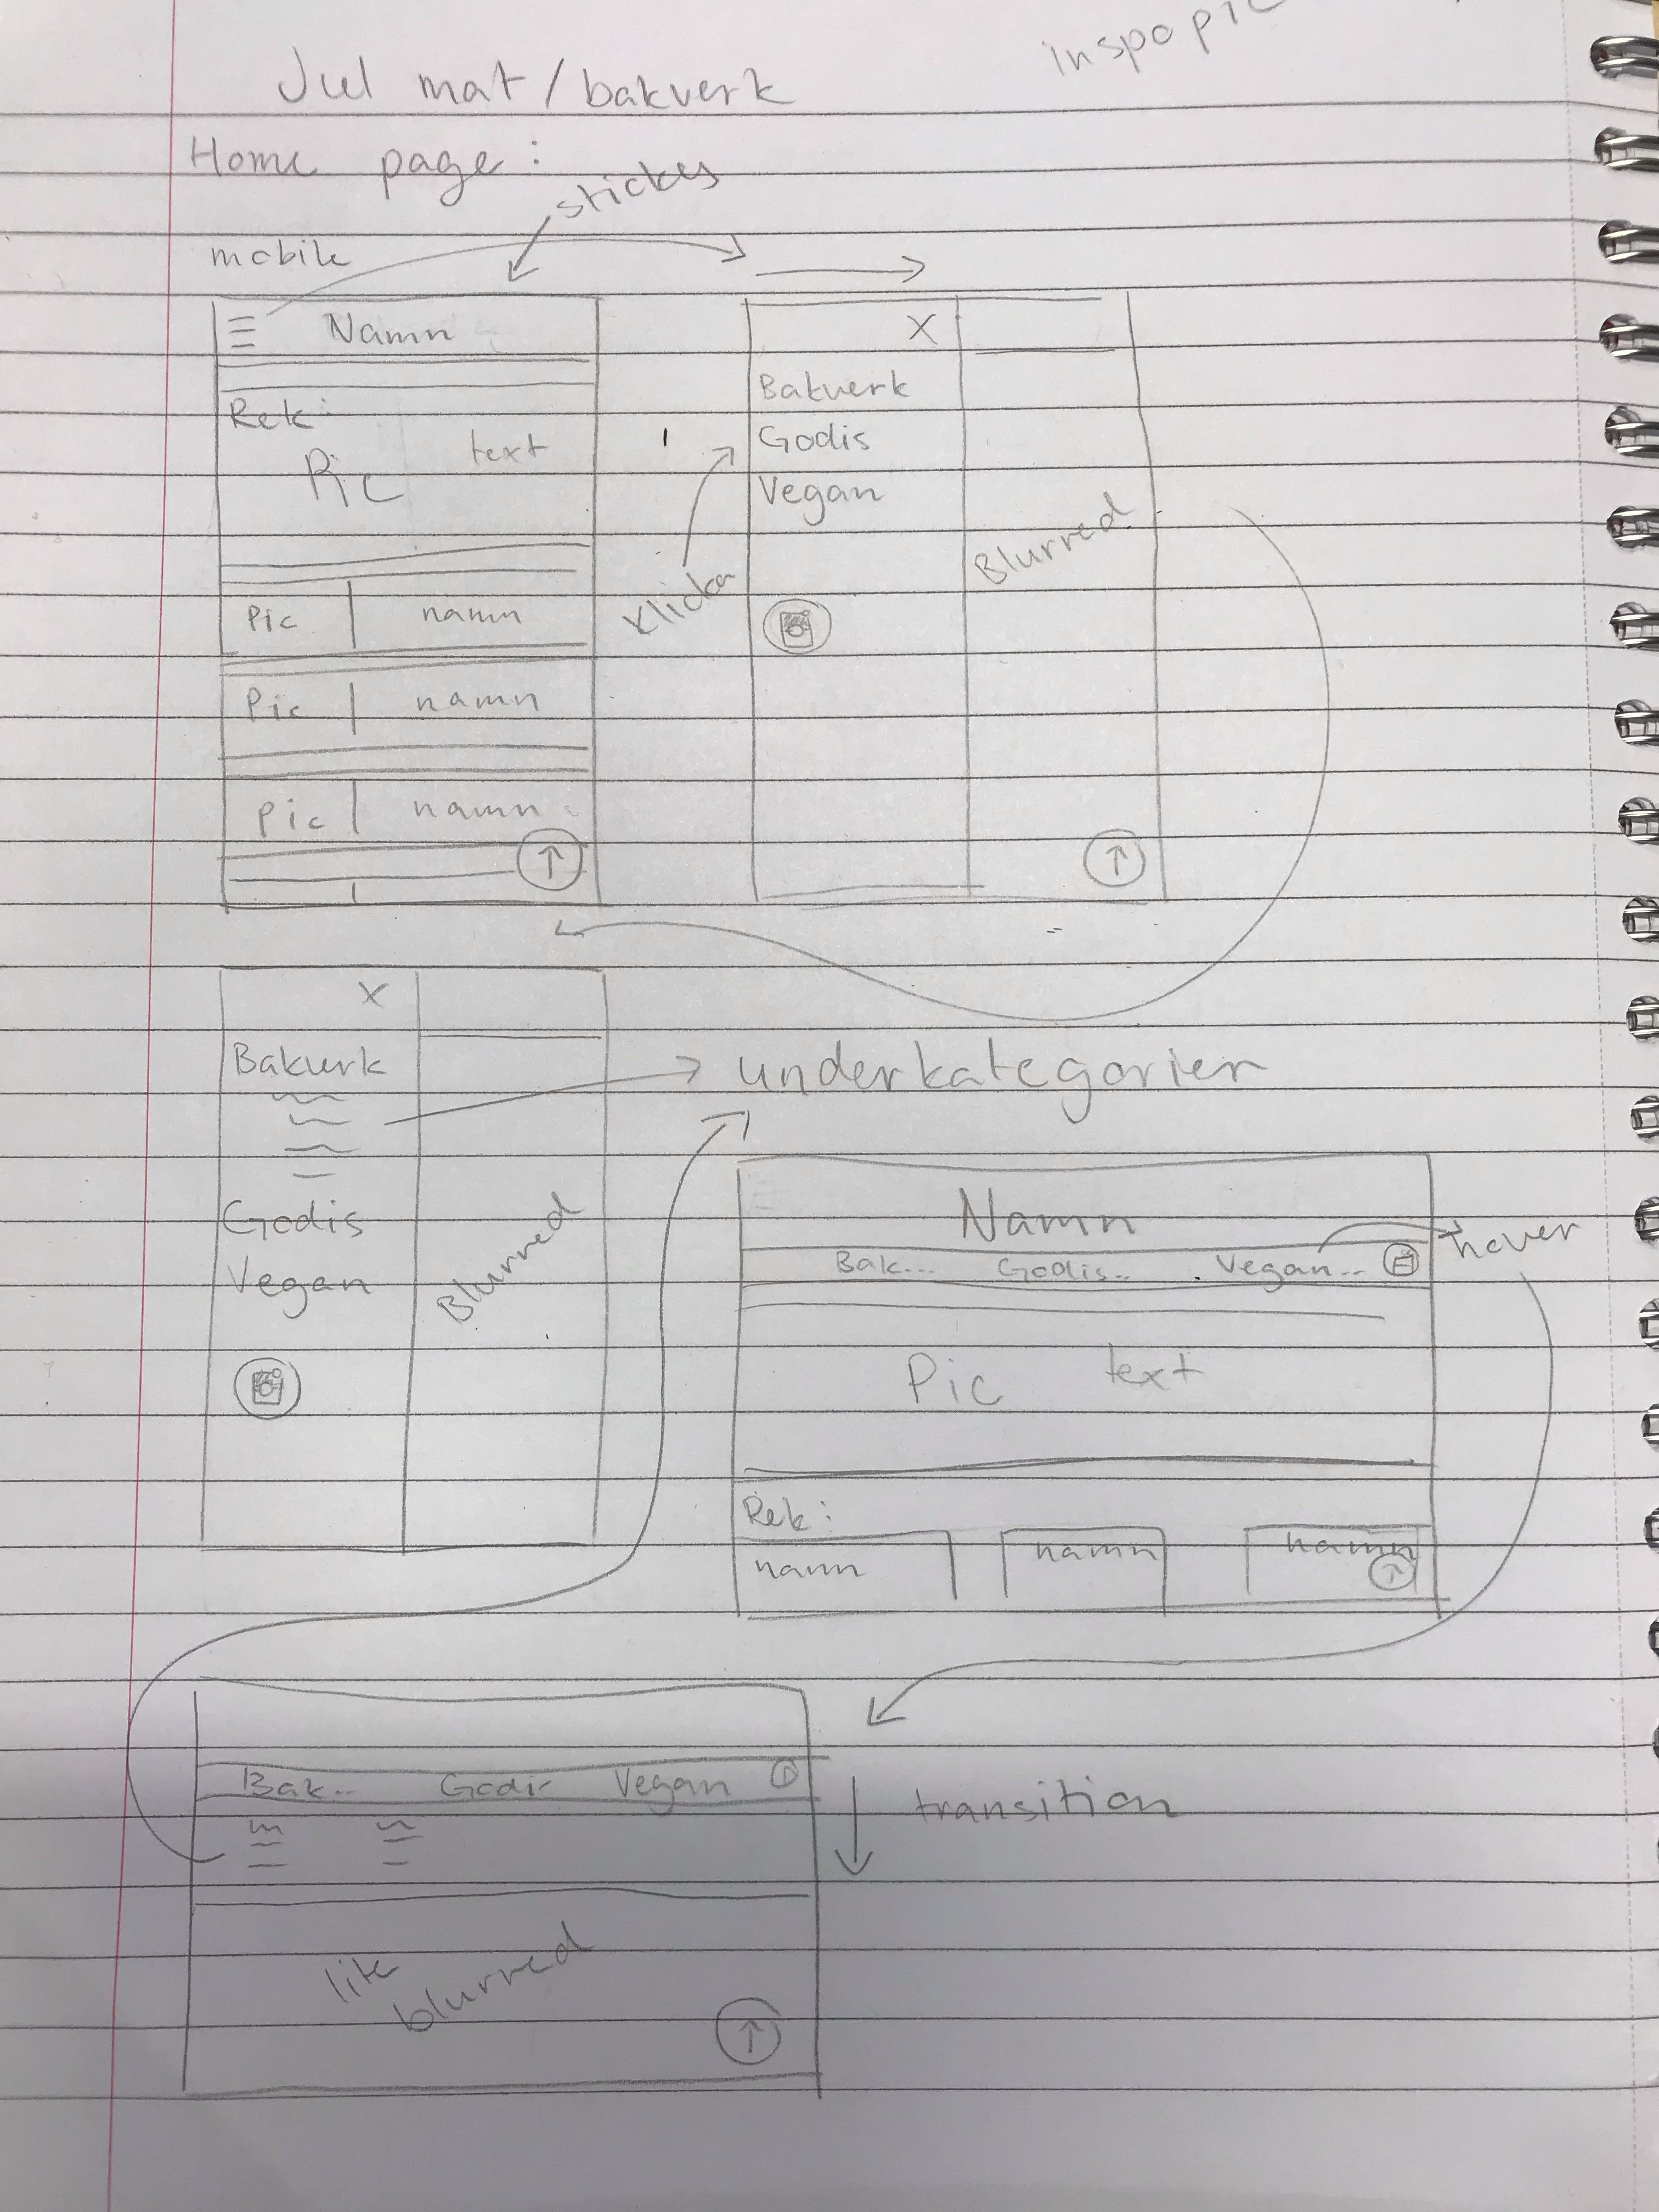 inspo pic
Jul mat / bakverk
Home page:
sticky
mobile
Namn
Rek:
Pic text
Pic namn
Pic namn
Pic namn
Klicka
X
Bakverk
Godis
Vegan
Blurred
X
Bakverk
Godis
Vegan
Blurred
underkategorier
Namn
Bak... Godis.. Vegan..
hover
Pic text
Rek:
namn namn namn
Bak... Godis Vegan
transition
lite
blurred